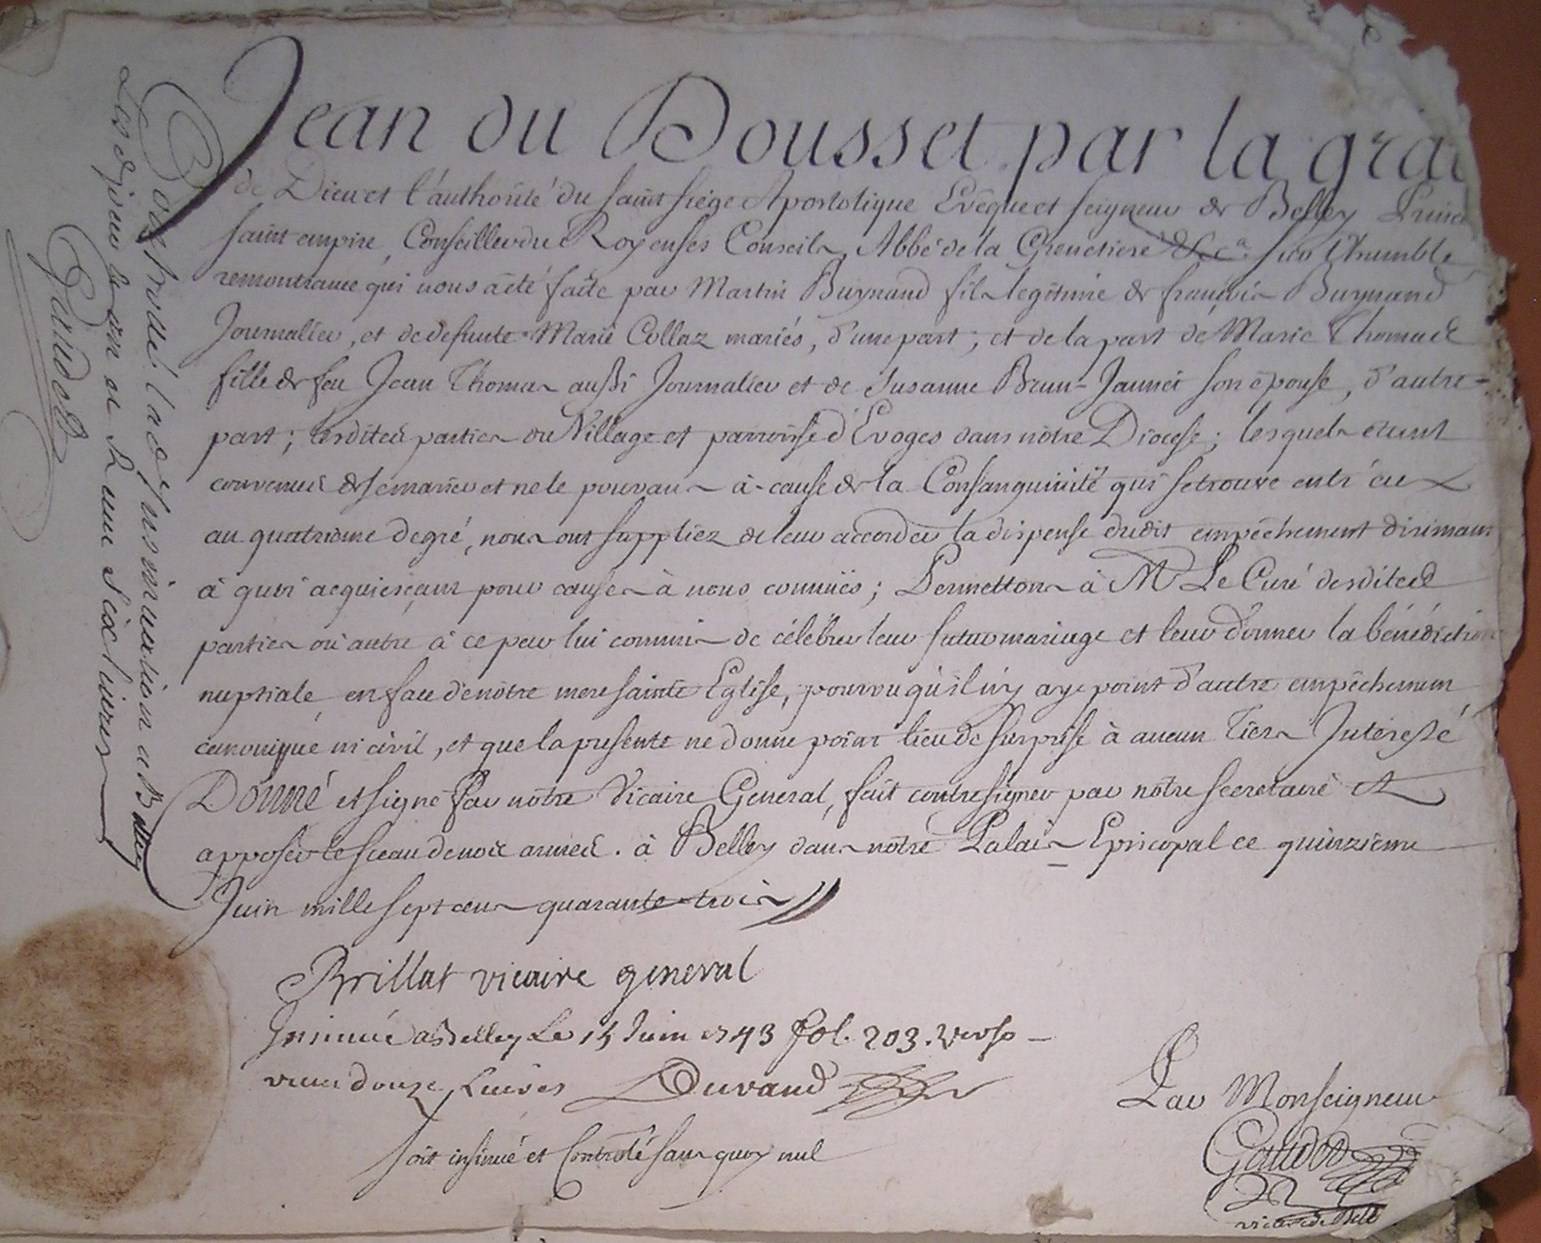 Jean du Dousset par la grac
de Dieu et l'authorité du saint siége Apostolique Evêque et seigneur de Belley Prince
saint empire, Conseiller du Roy en ses Conseils, Abbé de la Grenetiere &c.a sur l'humble
remontrance qui nous a été faite par Martin Buynand fils legitime de françois Buynand
Journalier, et de defunte Marie Collaz mariés, d'une part; et de la part de Marie Thomas
fille de feu Jean Thomas aussi Journalier et de Susanne Brun-Jannet son épouse, d'autre
part; lesdites parties du Village et parroisse d'Evoges dans nôtre Diocese; lesquels étant
convenus de se marier et ne le pouvant à cause de la Consanguinité qui se trouve entr'eux
au quatrieme degré, nous ont suppliez de leur accorder la dispense dudit empêchement dirimant
à quoi acquiesçant pour causes à nous connuës; Permettons à Mr Le Curé desdites
parties ou autre à ce par lui commis de célébrer leur futur mariage et leur donner la bénédiction
nuptiale en face de nôtre mere sainte Eglise, pourvu qu'il n'y aye point d'autre empêchement
canonique ni civil, et que la presente ne donne point lieu de surprise à aucun Tiers Intéressé
Donné et signé par nôtre Vicaire General, fait contresigner par nôtre secretaire et
apposer le sceau de nos armes. à Belley dans nôtre Palais Episcopal ce quinzieme
Juin mille sept cens quarante trois
Brillat vicaire general
Insinué a Belley Le 15 Juin 1743 fol. 203. Verso
douze Livres Duvand
soit insinué et Controlé sans quoy nul
Par Monseigneur
Gaudet
l'adte insinuation a Belley
Les d jour et an et Reçu Six livres
Gaudet